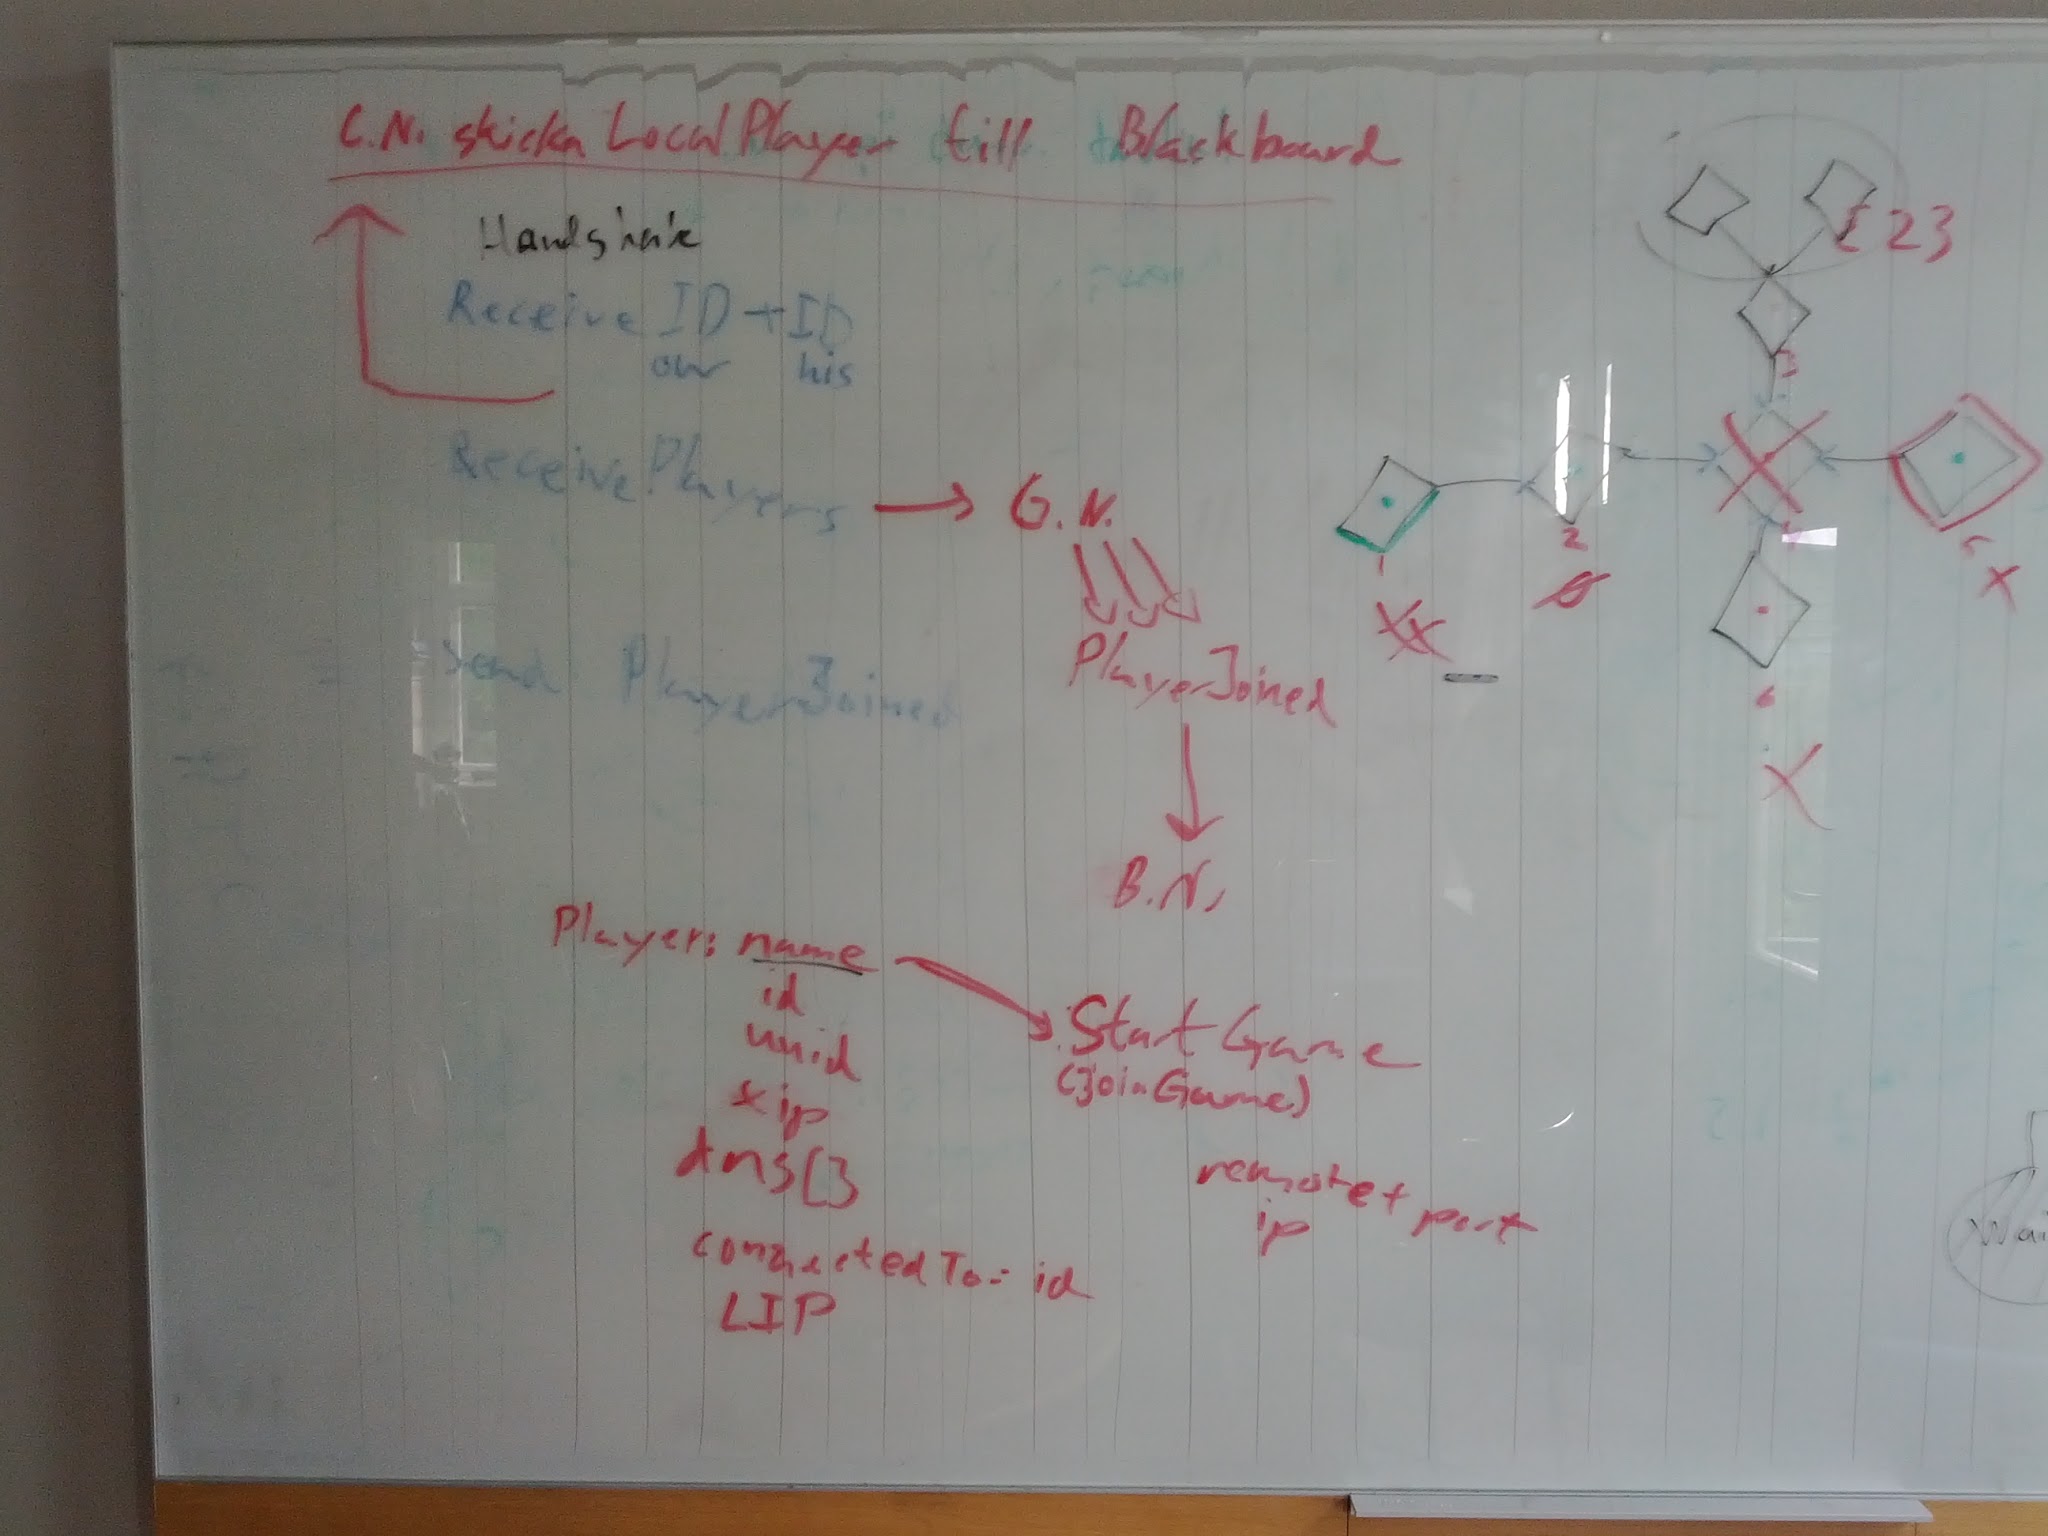 C.N. skicka LocalPlayer till Blackboard
Handshake
Receive ID + ID
our his
Receive Players → G.N.
Send PlayerJoined
PlayerJoined
B.N.
Player: name
id
uuid
* ip
dns[]
connectedTo = id
LIP
Start Game
(JoinGame)
remote + port
ip
23
1
2
3
X
XX
X
Wai